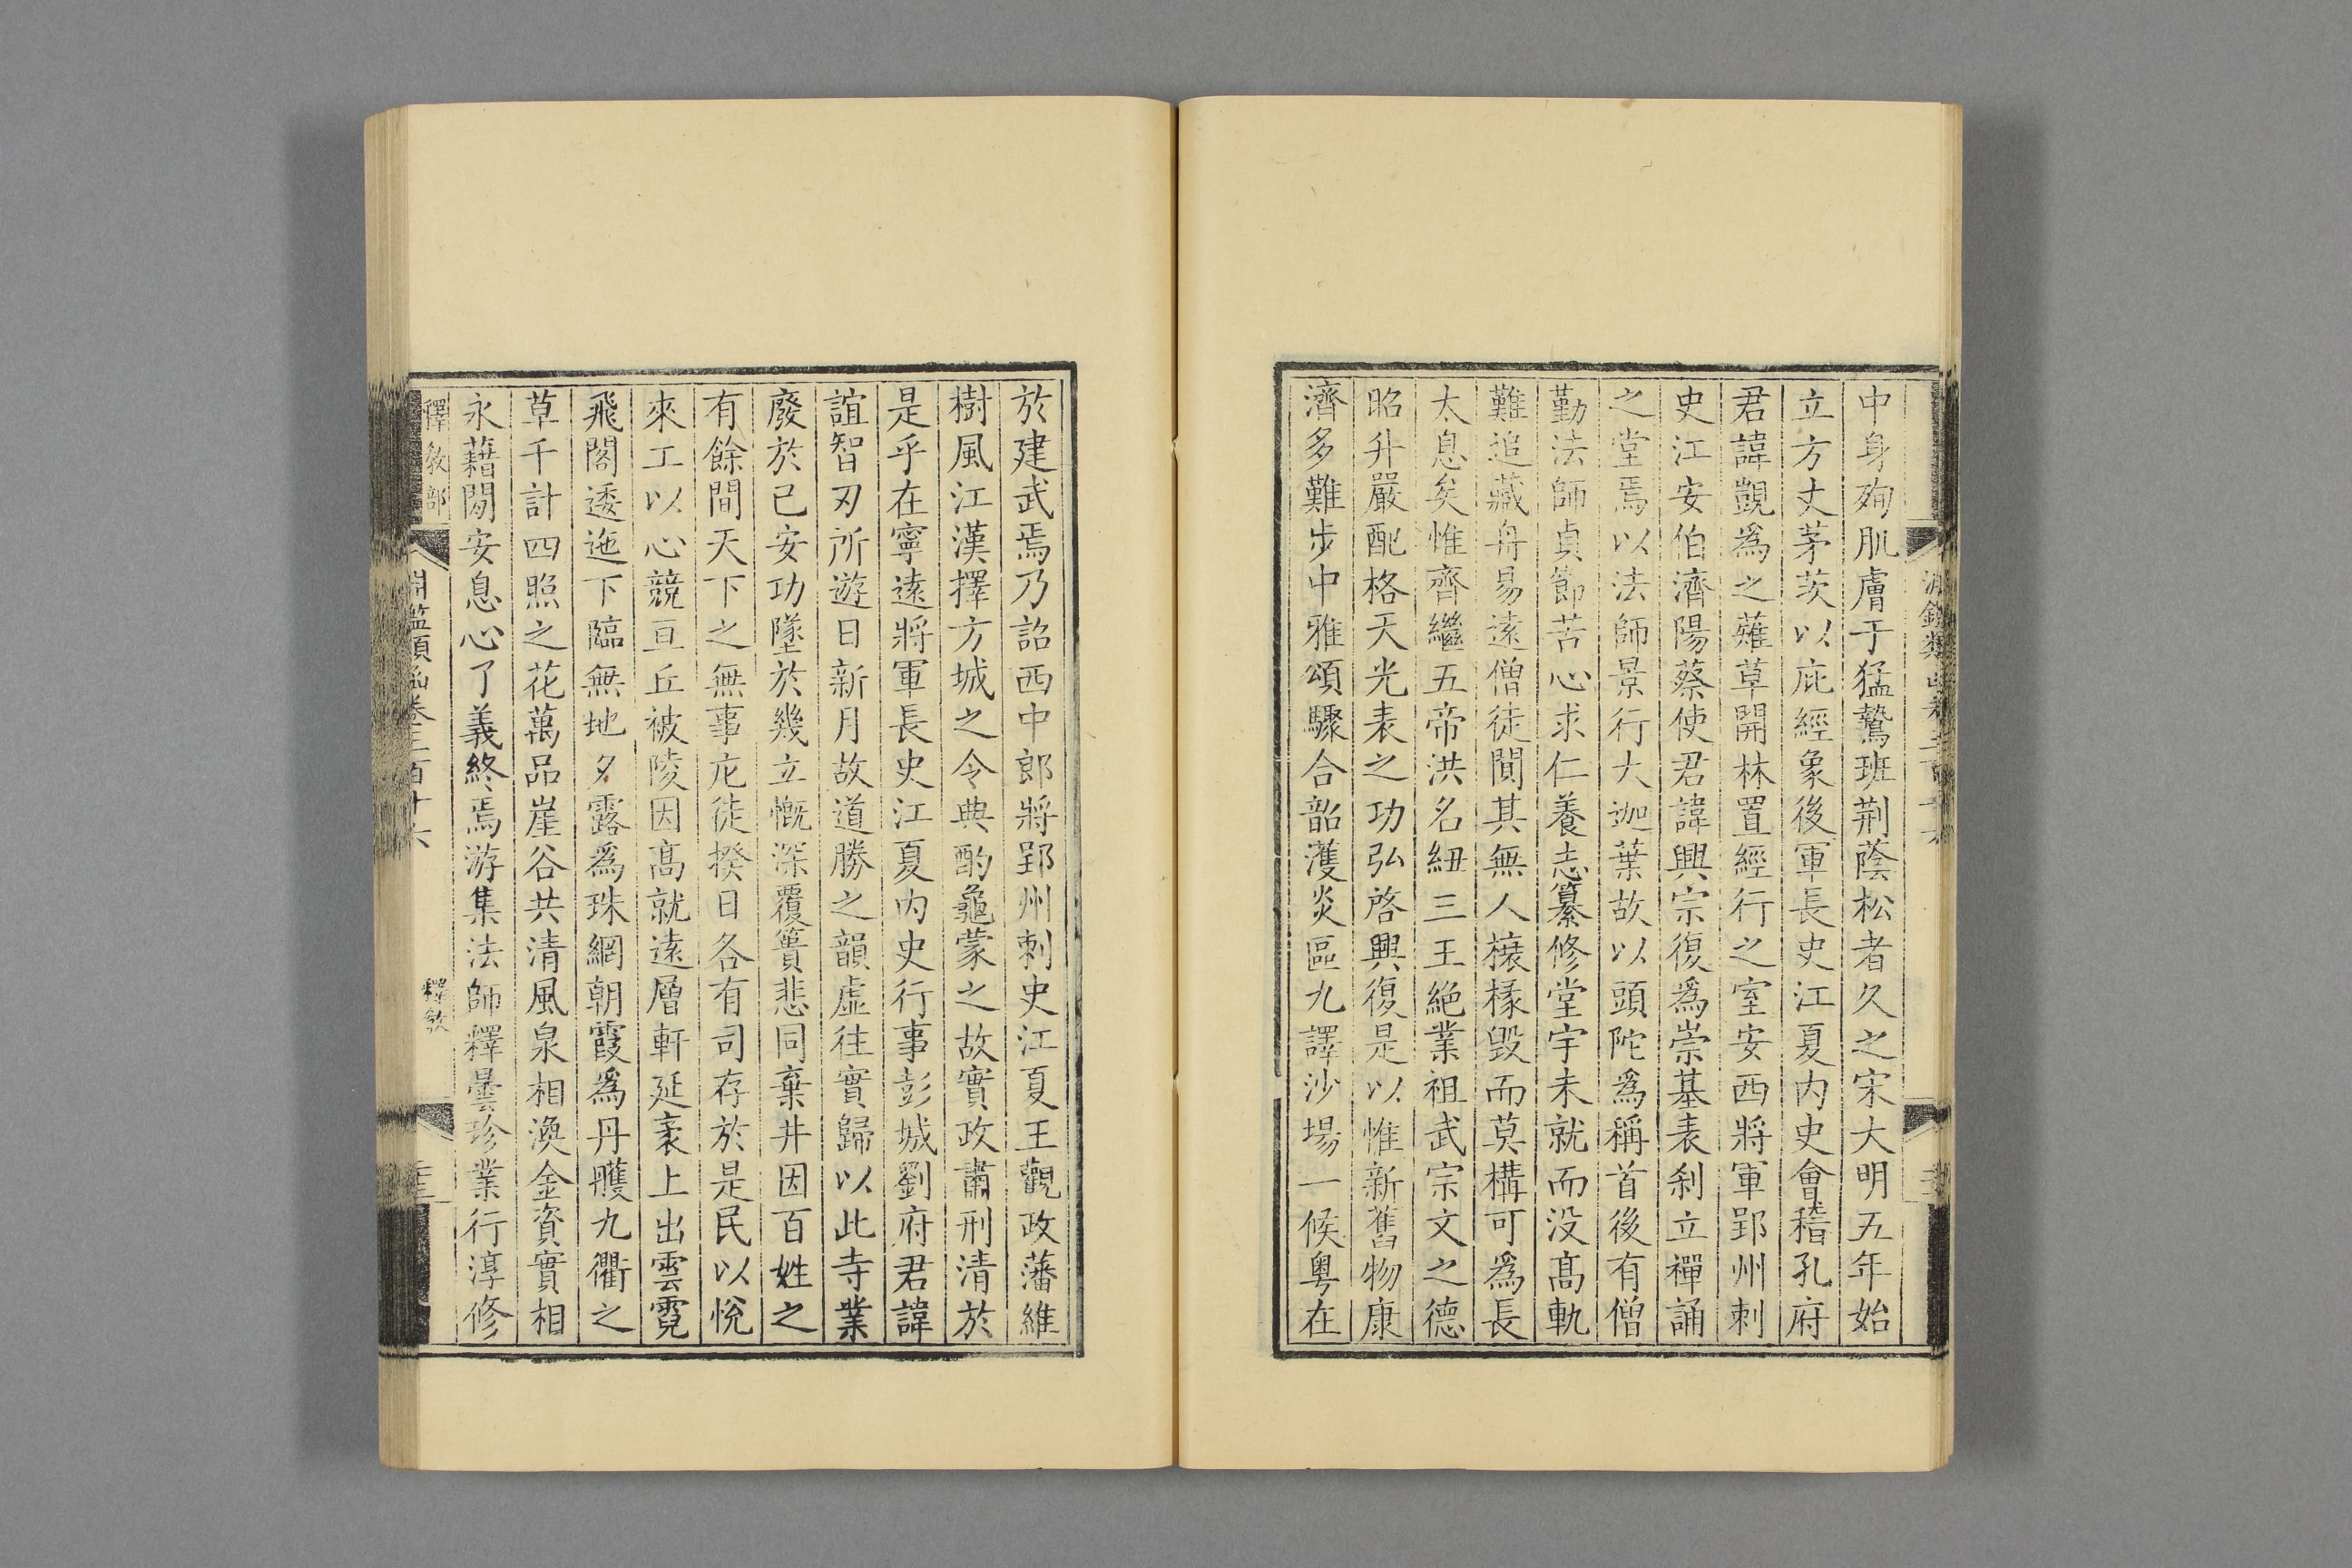 中身殉肌膚于猛鷙班荆蔭松者久之宋大明五年始
立方丈茅茨以庇經象後軍長史江夏内史會稽孔府
君諱覬爲之薙草開林置經行之室安西將軍郢州刺
史江安伯濟陽蔡使君諱興宗復爲崇基表刹立禪誦
之堂焉以法師景行大迦葉故以頭陀爲稱首後有僧
勤法師貞節苦心求仁養志纂修堂宇未就而没髙軌
難追藏舟易遠僧徒閴其無人榱椽毁而莫構可爲長
太息矣惟齊繼五帝洪名紐三王絶業祖武宗文之德
昭升嚴配格天光表之功弘啓興復是以惟新舊物康
濟多難步中雅頌驟合韶濩炎區九譯沙塲一候粤在
於建武焉乃詔西中郎將郢州刺史江夏王觀政藩維
樹風江漢擇方城之令典酌龜蒙之故實政肅刑清於
是乎在寧遠將軍長史江夏内史行事彭城劉府君諱
誼智刃所遊日新月故道勝之韻虚往實歸以此寺業
廢於已安功墜於幾立慨深覆簣悲同棄井因百姓之
有餘間天下之無事庀徒揆日各有司存於是民以悅
來工以心競亘丘被陵因髙就遠層軒延袤上出雲霓
飛閣逶迤下臨無地夕露爲珠網朝霞爲丹雘九衢之
草千計四照之花萬品崖谷共清風泉相渙金資寶相
永藉閑安息心了義終焉游集法師釋曇珍業行淳修
釋教部
淵鑑類函卷三百十六
釋教